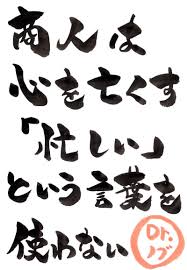 商人は
心を亡くす
「忙しい」
という言葉を
使わない
Dr.
ノブ